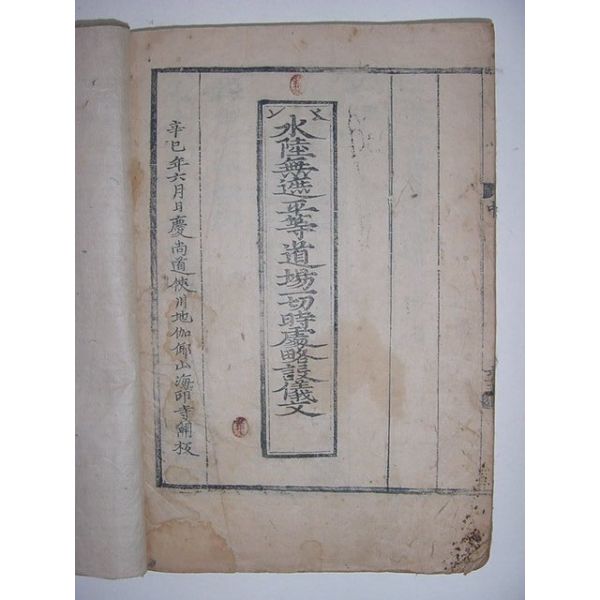 水陸無遮平等道場一切時處略設儀文
辛巳年六月日慶尚道俠川地伽倻山海印寺開板
中